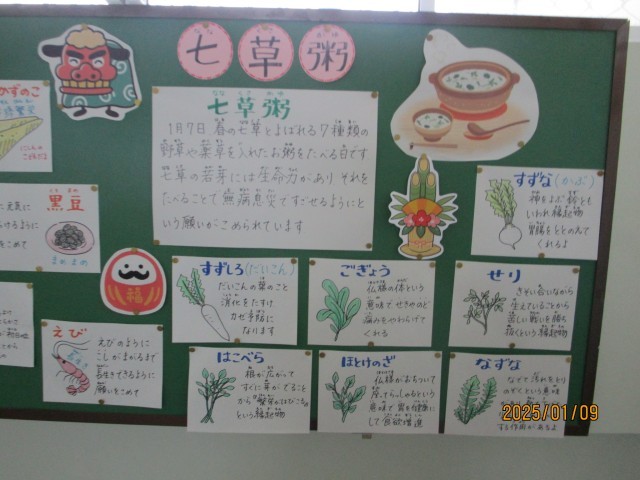 七草粥
七草粥
1月7日 春の七草とよばれる7種類の
野草や葉草を入れたお粥をたべる日です
七草の若芽には生命力があり それを
たべることで無病息災ですごせるようにと
いう願いがこめられています
かずのこ
黒豆
まめまめ
福
えび
えびのように
こしがまがるまで
長生きできるように
願いをこめて
すずな(かぶ)
神をよぶ鈴とも
いわれ縁起物
胃腸をととのえて
くれるよ
すずしろ(だいこん)
だいこんの葉のこと
消化をたすけ
カゼ予防に
なります
ごぎょう
仏様の体という
意味でせきやのど
の痛みをやわらげて
くれる
せり
きそい合いながら
生えていることから
はこべら
根が広がって
すぐに芽がでること
から"繁栄がはびこる"
という縁起物
ほとけのざ
仏様がおちついて
座っていらっしゃるという
意味で胃を健康に
して食欲増進
なずな
なでて汚れをとり
のぞくという意味
する作用があるよ
2025/01/09